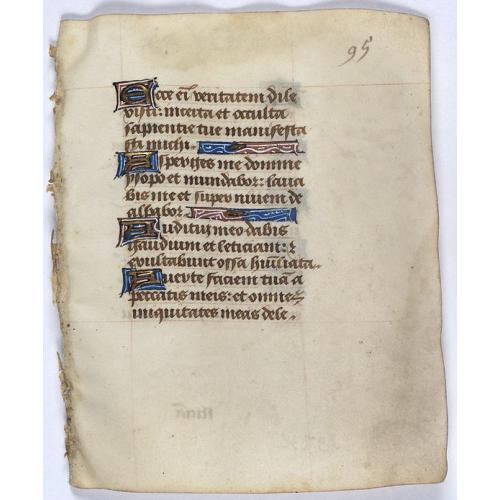 95
Ecce eī veritatem dile
xisti: incerta et occulta
sapientie tue manifesta
sta michi.
Asperges me domine
ysopo et mundabor: laua
bis me et super niuem de
albabor.
Auditui meo dabis
gaudium et leticiam: ⁊
exultabunt ossa hūiliata.
Auerte faciem tuā a
peccatis meis: et omnes
iniquitates meas dele.